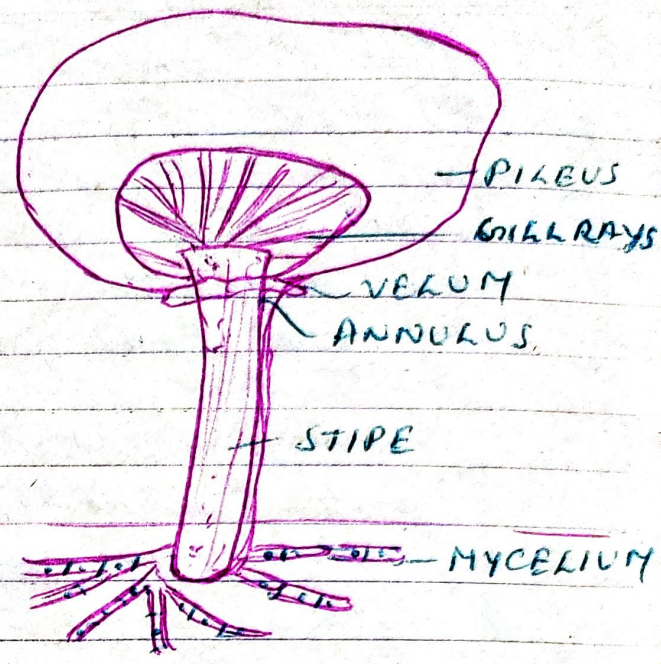 PILEUS
GILLRAYS
VELUM
ANNULUS
STIPE
MYCELIUM